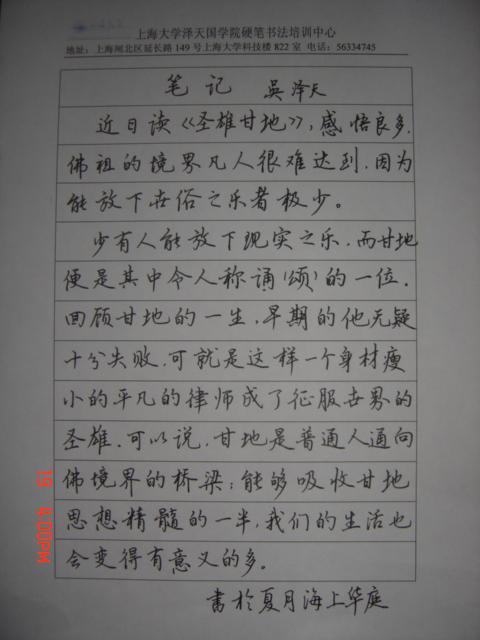 上海大学泽天国学院硬笔书法培训中心
地址：上海闸北区延长路 149 号上海大学科技楼 822 室 电话：56334745
笔记 吴泽天
近日读《圣雄甘地》，感悟良多.
佛祖的境界凡人很难达到.因为
能放下世俗之乐者极少。
少有人能放下现实之乐.而甘地
便是其中令人称诵(颂)的一位.
回顾甘地的一生.早期的他无疑
十分失败.可就是这样一个身材瘦
小的平凡的律师成了征服世界的
圣雄.可以说.甘地是普通人通向
佛境界的桥梁；能够吸收甘地
思想精髓的一半.我们的生活也
会变得有意义的多.
书於夏月海上华庭
19 4:00PM